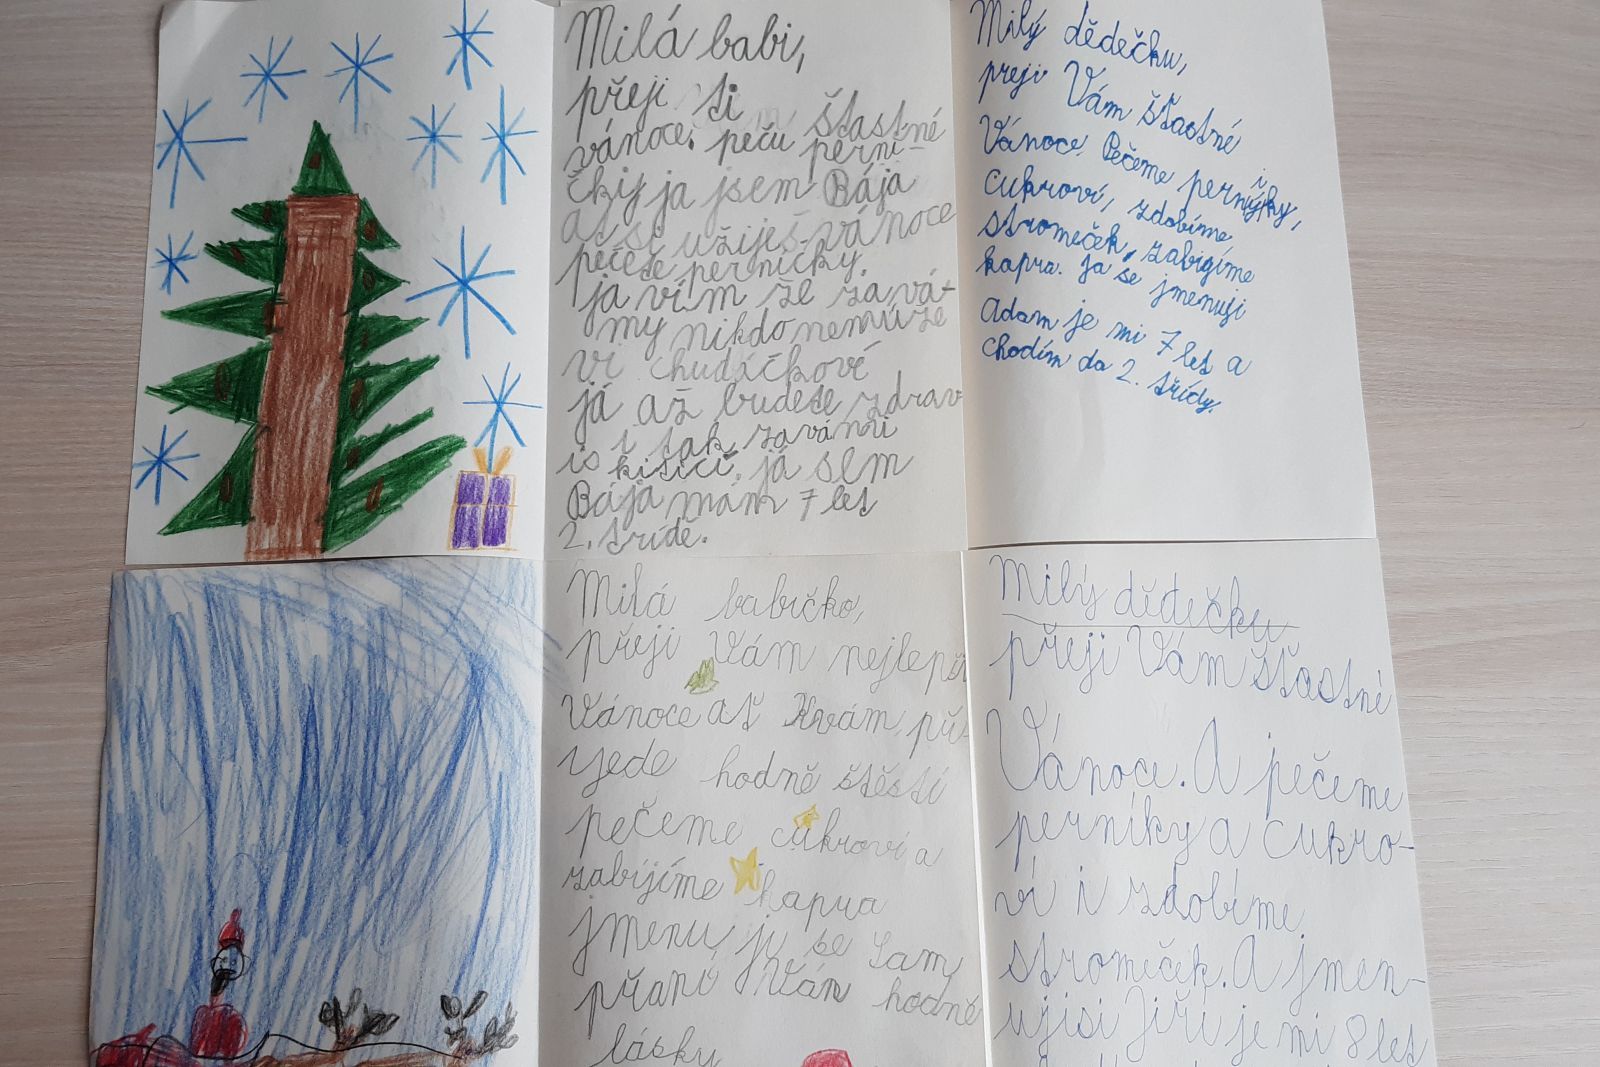 Milá babi,
přeji ti
šťastné
vánoce. peču perní-
čkiy ja jsem Bája
ať si užiješ vánoce
pečete perníčky.
ja vím ze za vá-
my nikdo nemúze
vi chudáčkové
já až budete zdrav
is i tak za vámi
is kišicí. já sem
Bája mám 7 let
2. třídě.
Milý dědečku,
přeji Vám šťastné
Vánoce. Pečeme perníky,
cukroví, zdobíme
stromeček, zabigíme
kapra. Ja se jmenuji
Adam je mi 7 let a
chodím do 2. třídy.
Milá babičko,
přeji Vám nejlepší
Vánoce ať K vám při-
jede hodně štěstí
pečeme cukroví a
zabíjíme kapra
jmenuju se Sam
přání Vám hodně
lásky
Milý dědečku
přeji Vám šťastné
Vánoce. A pečeme
perníky a cukro-
ví i zdobíme
stromeček. A jmen-
uji si Jiří je mi 8 let